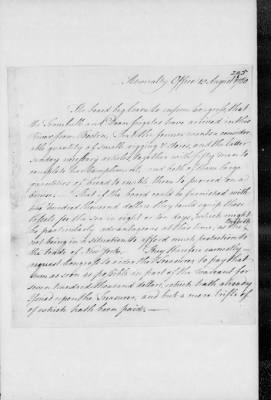 295
Admiralty Office 12 August 1780
The board beg leave to inform Congress, that
the Trumbull and Dean frigates have arrived in this
River from Boston, That the former wants a consider-
able quantity of small rigging & stores, and the latter
sundry necessary articles, together with fifty men to
complete her Complement, and both of them large
quantities of bread to enable them to proceed on a
cruise. That if the board could be furnished with
two hundred thousand dollars they could equip those
Vessels for the sea in eight or ten days, which might
be particularly advantageous at this time, as the
not being in a situation to afford much protection to
the trade of New York. They therefore earnestly
request Congress to order the Treasurer to pay that
sum as soon as possible in part of the warrant for
seven hundred thousand dollars, which hath already
issued upon the Treasurer, and but a mere trifle of
of which hath been paid.